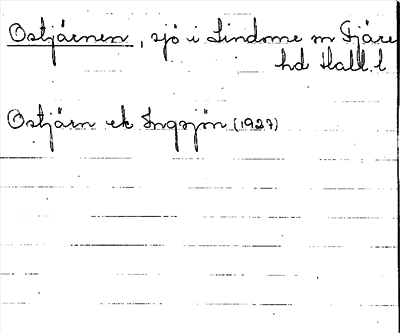 Ostjärnen, sjö i Lindome sn Fjäre
hd Hall. l.
Ostjärn ek Ingsjön (1927)